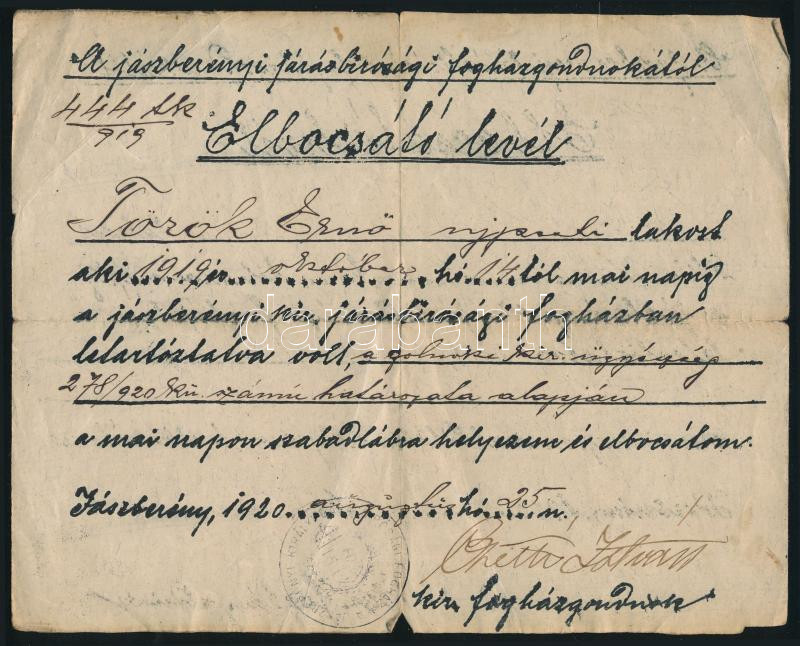 A jászberényi járásbirósági fogházgondnokától
444 tk
919
Elbocsátó levél
Török Ernő ujpesti lakost
aki 1919 év október hó 14 től mai napig
a jászberényi kir. járásbirósági fogházban
letartóztatva volt, a szolnoki kir. ügyészség
278/920 kü. számu határozata alapján
a mai napon szabadlábra helyezem és elbocsátom.
Jászberény, 1920. augusztus hó 25 n.
István
kir. fogházgondnok
darabanth